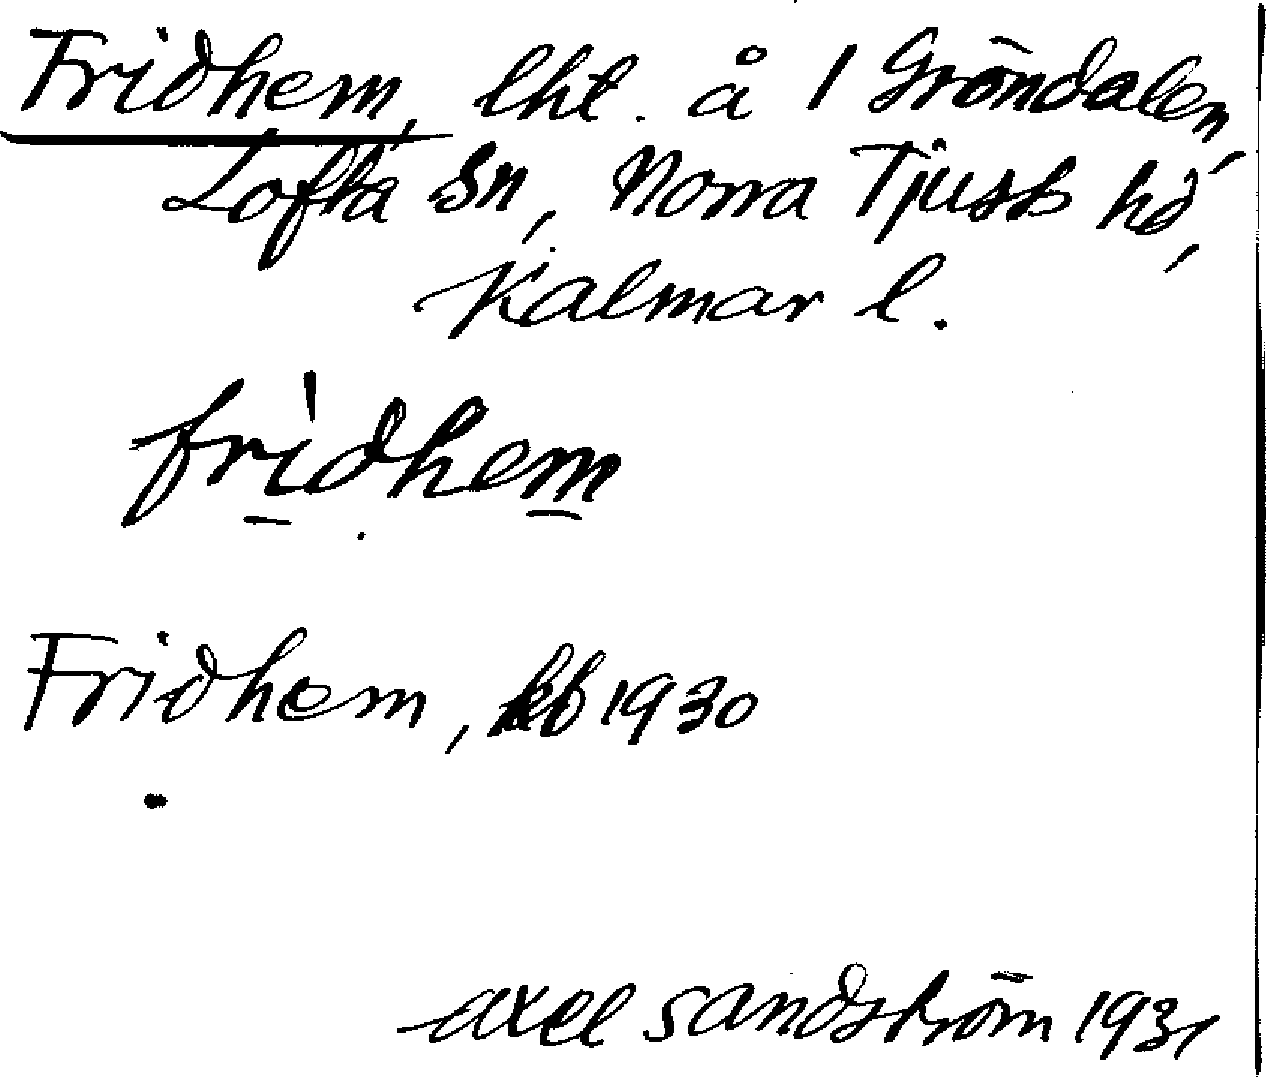 Fridhem, lht. å 1 Gröndalen,
Lofta sn, Norra Tjusts hd,
Kalmar l.
frìdhem
Fridhem, kb 1930
Axel Sandström 1931